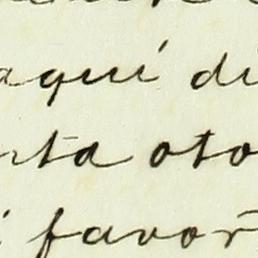 aquí di
nta oto
i favor